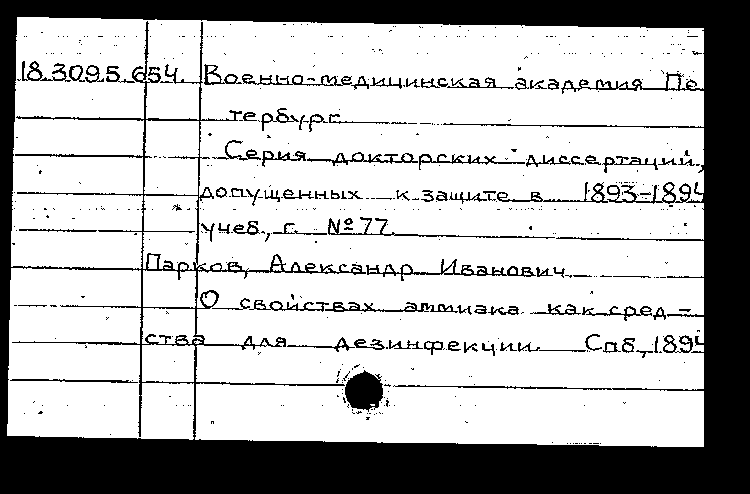 18.309.5.654. Военно-медицинская академия Пе
тербург.
Серия докторских диссертаций,
допущенных к защите в 1893-1894
учеб., г. №77.
Парков, Александр Иванович.
О свойствах аммиака как сред =
ства для дезинфекции. Спб., 1894